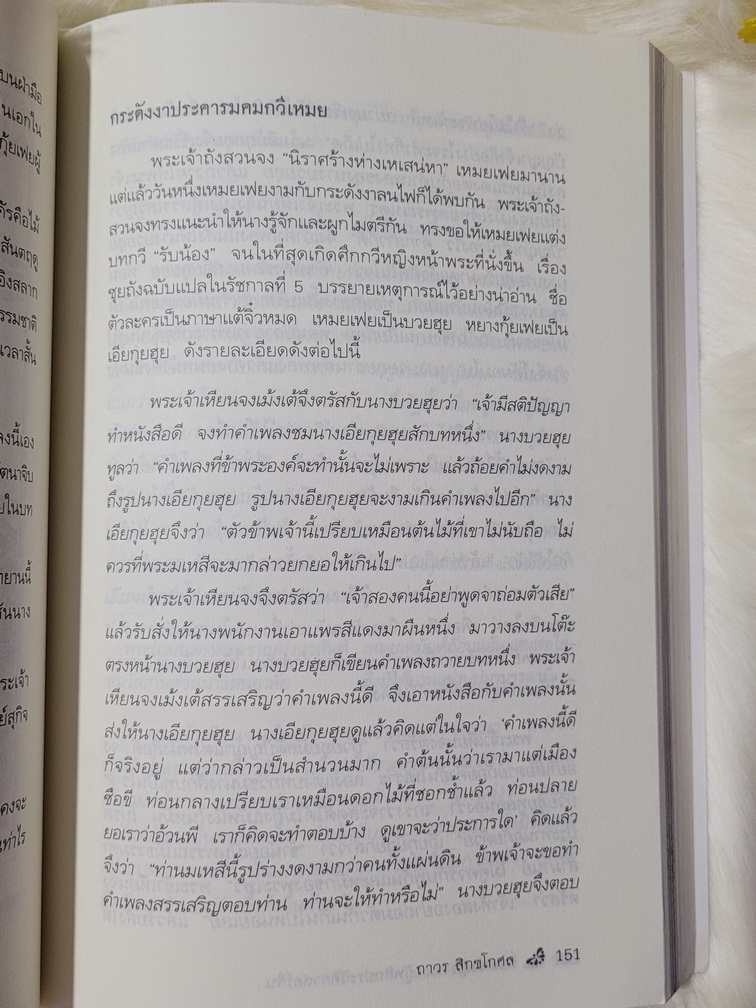 บนฝ่ามือ
นเอกใน
กุ้ยเฟยผู้
คัรคือไม้
สันตฤดู
อิงสลาก
รรมชาติ
เวลาสั้น
ลงนี้เอง
ตนาจิบ
ยในบท
ายานนี้
สันนาง
ระเจ้า
ย์สุกิจ
คงจะ
นเท่าไร
กระดังงาประคารมคมกวีเหมย
พระเจ้าถังสวนจง "นิราศร้างห่างเหเสน่หา" เหมยเฟยมานาน
แต่แล้ววันหนึ่งเหมยเฟยงามกับกระดังงาลนไฟก็ได้พบกัน พระเจ้าถัง-
สวนจงทรงแนะนำให้นางรู้จักและผูกไมตรีกัน ทรงขอให้เหมยเฟยแต่ง
บทกวี "รับน้อง" จนในที่สุดเกิดศึกกวีหญิงหน้าพระที่นั่งขึ้น เรื่อง
ซุยถังฉบับแปลในรัชกาลที่ 5 บรรยายเหตุการณ์ไว้อย่างน่าอ่าน ชื่อ
ตัวละครเป็นภาษาแต้จิ๋วหมด เหมยเฟยเป็นบวยฮุย หยางกุ้ยเฟยเป็น
เอียกุยฮุย ดังรายละเอียดดังต่อไปนี้
พระเจ้าเหียนจงเม้งเต้จึงตรัสกับนางบวยฮุยว่า "เจ้ามีสติปัญญา
ทำหนังสือดี จงทำคำเพลงชมนางเอียกุยฮุยสักบทหนึ่ง" นางบวยฮุย
ทูลว่า "คำเพลงที่ข้าพระองค์จะทำนั้นจะไม่เพราะ แล้วถ้อยคำไม่งดงาม
ถึงรูปนางเอียกุยฮุย รูปนางเอียกุยฮุยจะงามเกินคำเพลงไปอีก" นาง
เอียกุยฮุยจึงว่า "ตัวข้าพเจ้านี้เปรียบเหมือนต้นไม้ที่เขาไม่นับถือ ไม่
ควรที่พระมเหสีจะมากล่าวยกยอให้เกินไป"
พระเจ้าเหียนจงจึงตรัสว่า "เจ้าสองคนนี้อย่าพูดจาถ่อมตัวเสีย"
แล้วรับสั่งให้นางพนักงานเอาแพรสีแดงมาผืนหนึ่ง มาวางลงบนโต๊ะ
ตรงหน้านางบวยฮุย นางบวยฮุยก็เขียนคำเพลงถวายบทหนึ่ง พระเจ้า
เหียนจงเม้งเต้สรรเสริญว่าคำเพลงนี้ดี จึงเอาหนังสือกับคำเพลงนั้น
ส่งให้นางเอียกุยฮุย นางเอียกุยฮุยดูแล้วคิดแต่ในใจว่า 'คำเพลงนี้ดี
ก็จริงอยู่ แต่ว่ากล่าวเป็นสำนวนมาก คำต้นนั้นว่าเรามาแต่เมือง
ซือขี ท่อนกลางเปรียบเราเหมือนดอกไม้ที่ชอกช้ำแล้ว ท่อนปลาย
ยอเราว่าอ้วนพี เราก็คิดจะทำตอบบ้าง ดูเขาจะว่าประการใด' คิดแล้ว
จึงว่า "ท่านมเหสีนี้รูปร่างงดงามกว่าคนทั้งแผ่นดิน ข้าพเจ้าจะขอทำ
คำเพลงสรรเสริญตอบท่าน ท่านจะให้ทำหรือไม่" นางบวยฮุยจึงตอบ
ถาวร สิกขโกศล 151